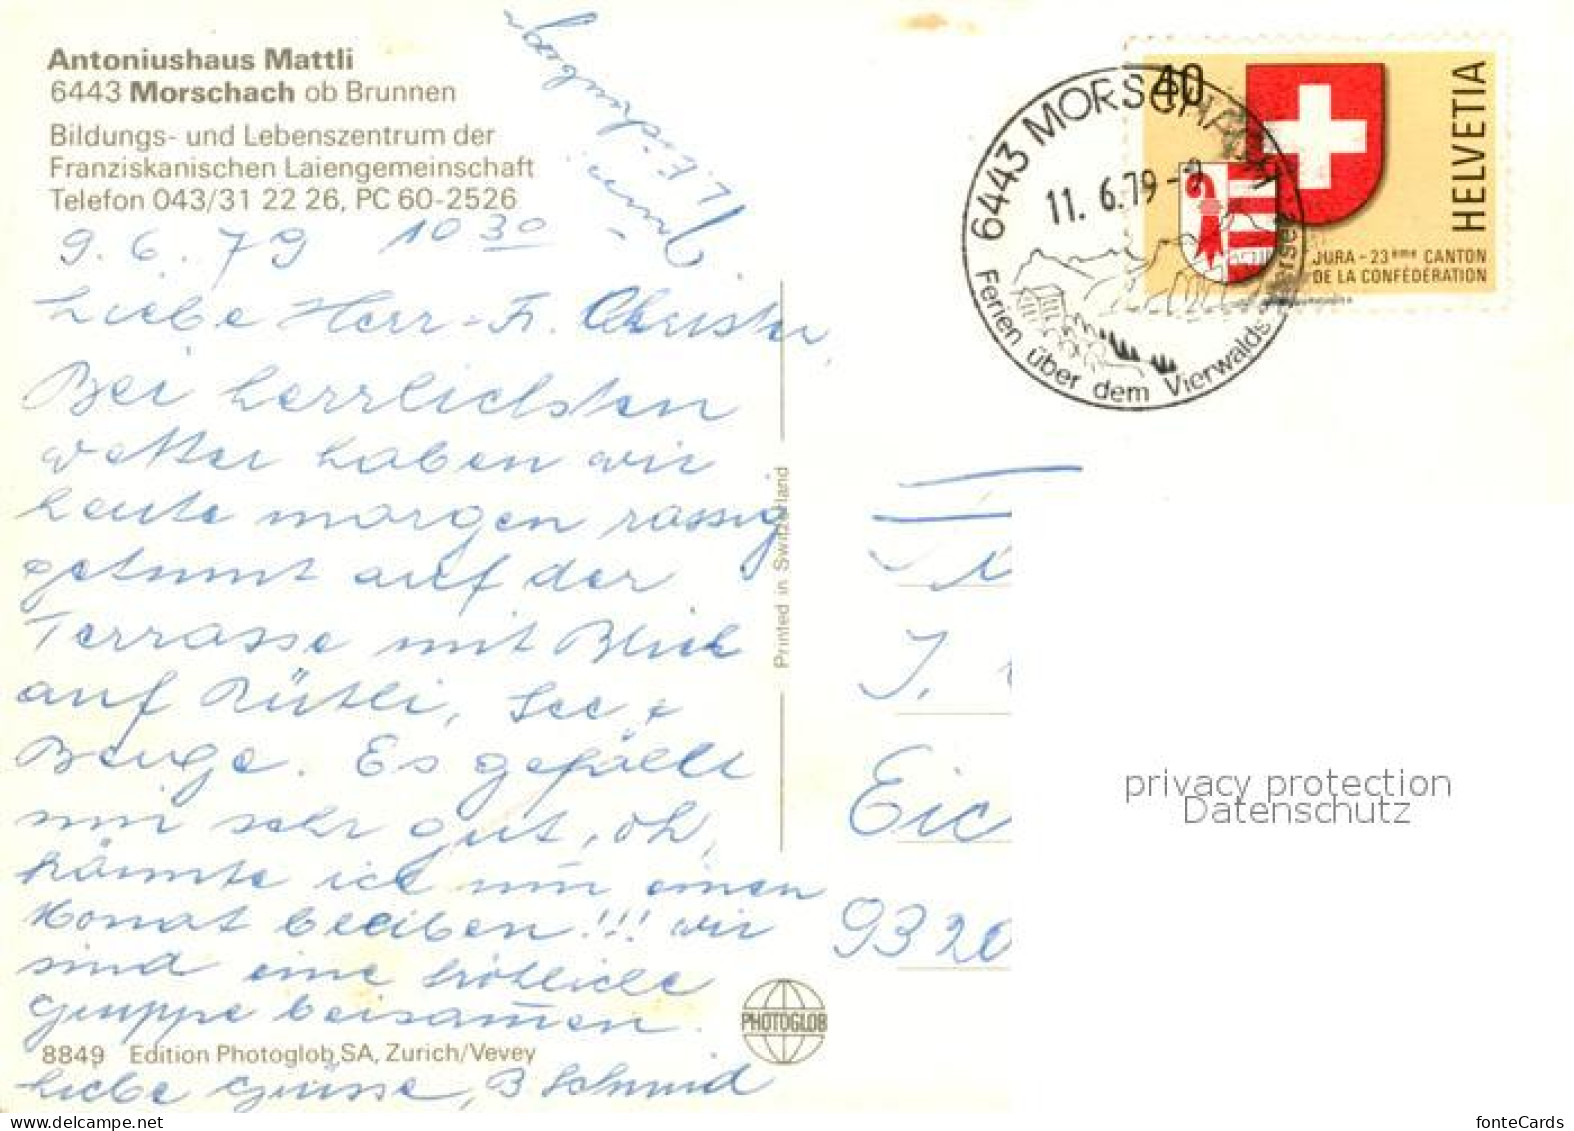 Antoniushaus Mattli
6443 Morschach ob Brunnen
Bildungs- und Lebenszentrum der
Franziskanischen Laiengemeinschaft
Telefon 043/31 22 26, PC 60-2526
9. 6. 79 10 30
Liebe Herr + Fr. Christen,
Bei herrlichsten
wetter haben wir
heute morgen rassig
geturnt auf der
Terrasse mit Blick
auf Rütli, See +
Berge. Es gefällt
mir sehr gut, oh,
könnte ich nur einen
Monat bleiben!!! wir
sind eine fröhliche
Gruppe beisamen.
8849 Edition Photoglob SA, Zurich/Vevey
Liebe Grüsse, B Schmid
Printed in Switzerland
PHOTOGLOB
40
HELVETIA
JURA - 23ème CANTON
DE LA CONFÉDÉRATION
6443 MORSCHACH
11. 6. 79
Ferien über dem Vierwaldstättersee
J.
Eic
9320
privacy protection
Datenschutz
fonteCards